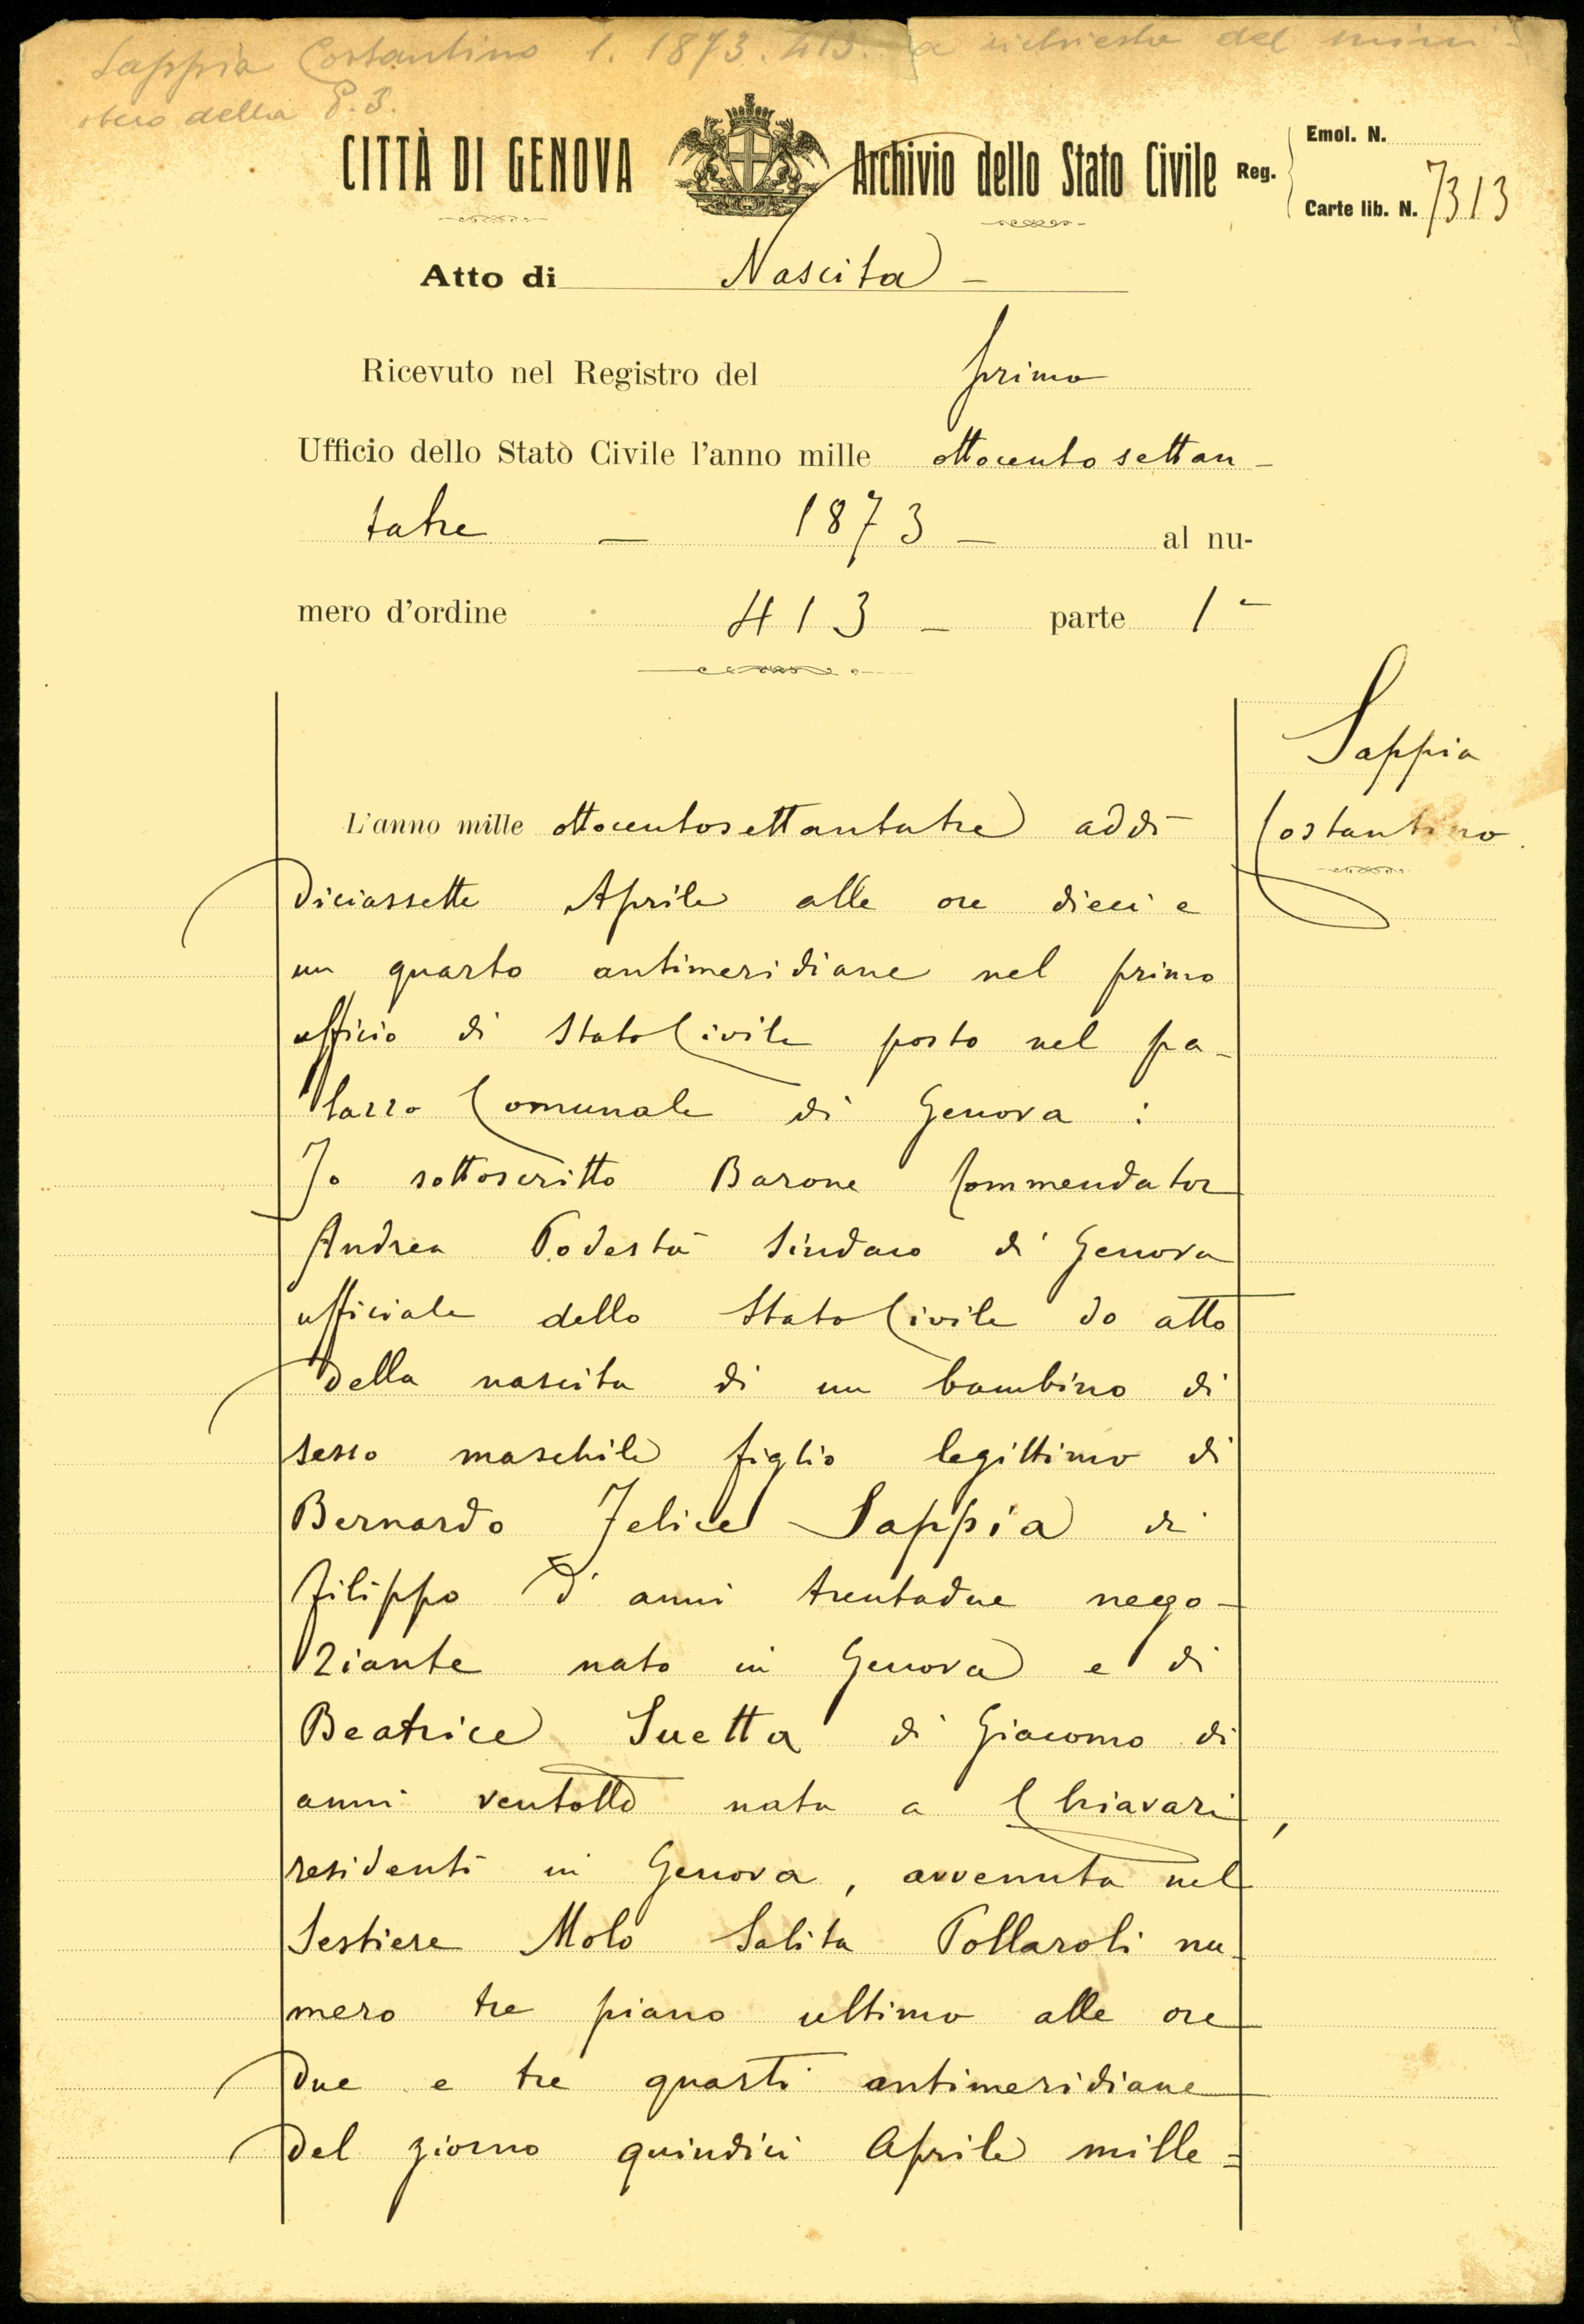 Sappia Costantino 1. 1873. 413. a richiesta del mini-
stero della P. I.
CITTÀ DI GENOVA Archivio dello Stato Civile Reg. Emol. N.
Carte lib. N. 7313
Atto di Nascita -
Ricevuto nel Registro del primo
Ufficio dello Stato Civile l'anno mille ottocento settan-
tatre - 1873 - al nu-
mero d'ordine 413 - parte 1a
Sappia
Costantino
L'anno mille ottocentosettantatre addì
diciassette Aprile alle ore dieci e
un quarto antimeridiane nel primo
ufficio di Stato Civile posto nel pa-
lazzo Comunale di Genova :
Io sottoscritto Barone Commendator
Andrea Podestà Sindaco di Genova
ufficiale dello Stato Civile do atto
della nascita di un bambino di
sesso maschile figlio legittimo di
Bernardo Felice Sappia di
Filippo d'anni trentadue nego-
ziante nato in Genova e di
Beatrice Suetta di Giacomo di
anni ventotto nata a Chiavari,
residenti in Genova, avvenuta nel
Sestiere Molo Salita Pollaroli nu-
mero tre piano ultimo alle ore
due e tre quarti antimeridiane
del giorno quindici Aprile mille=